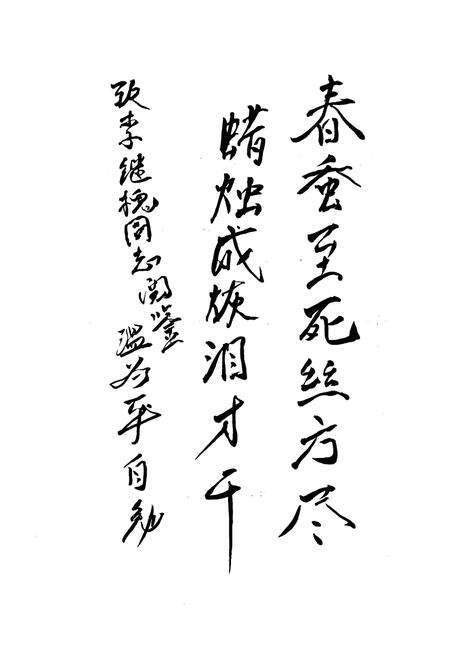 春蚕至死丝方尽
蜡烛成灰泪才干
致李继槐同志阅鉴
温为平自勉